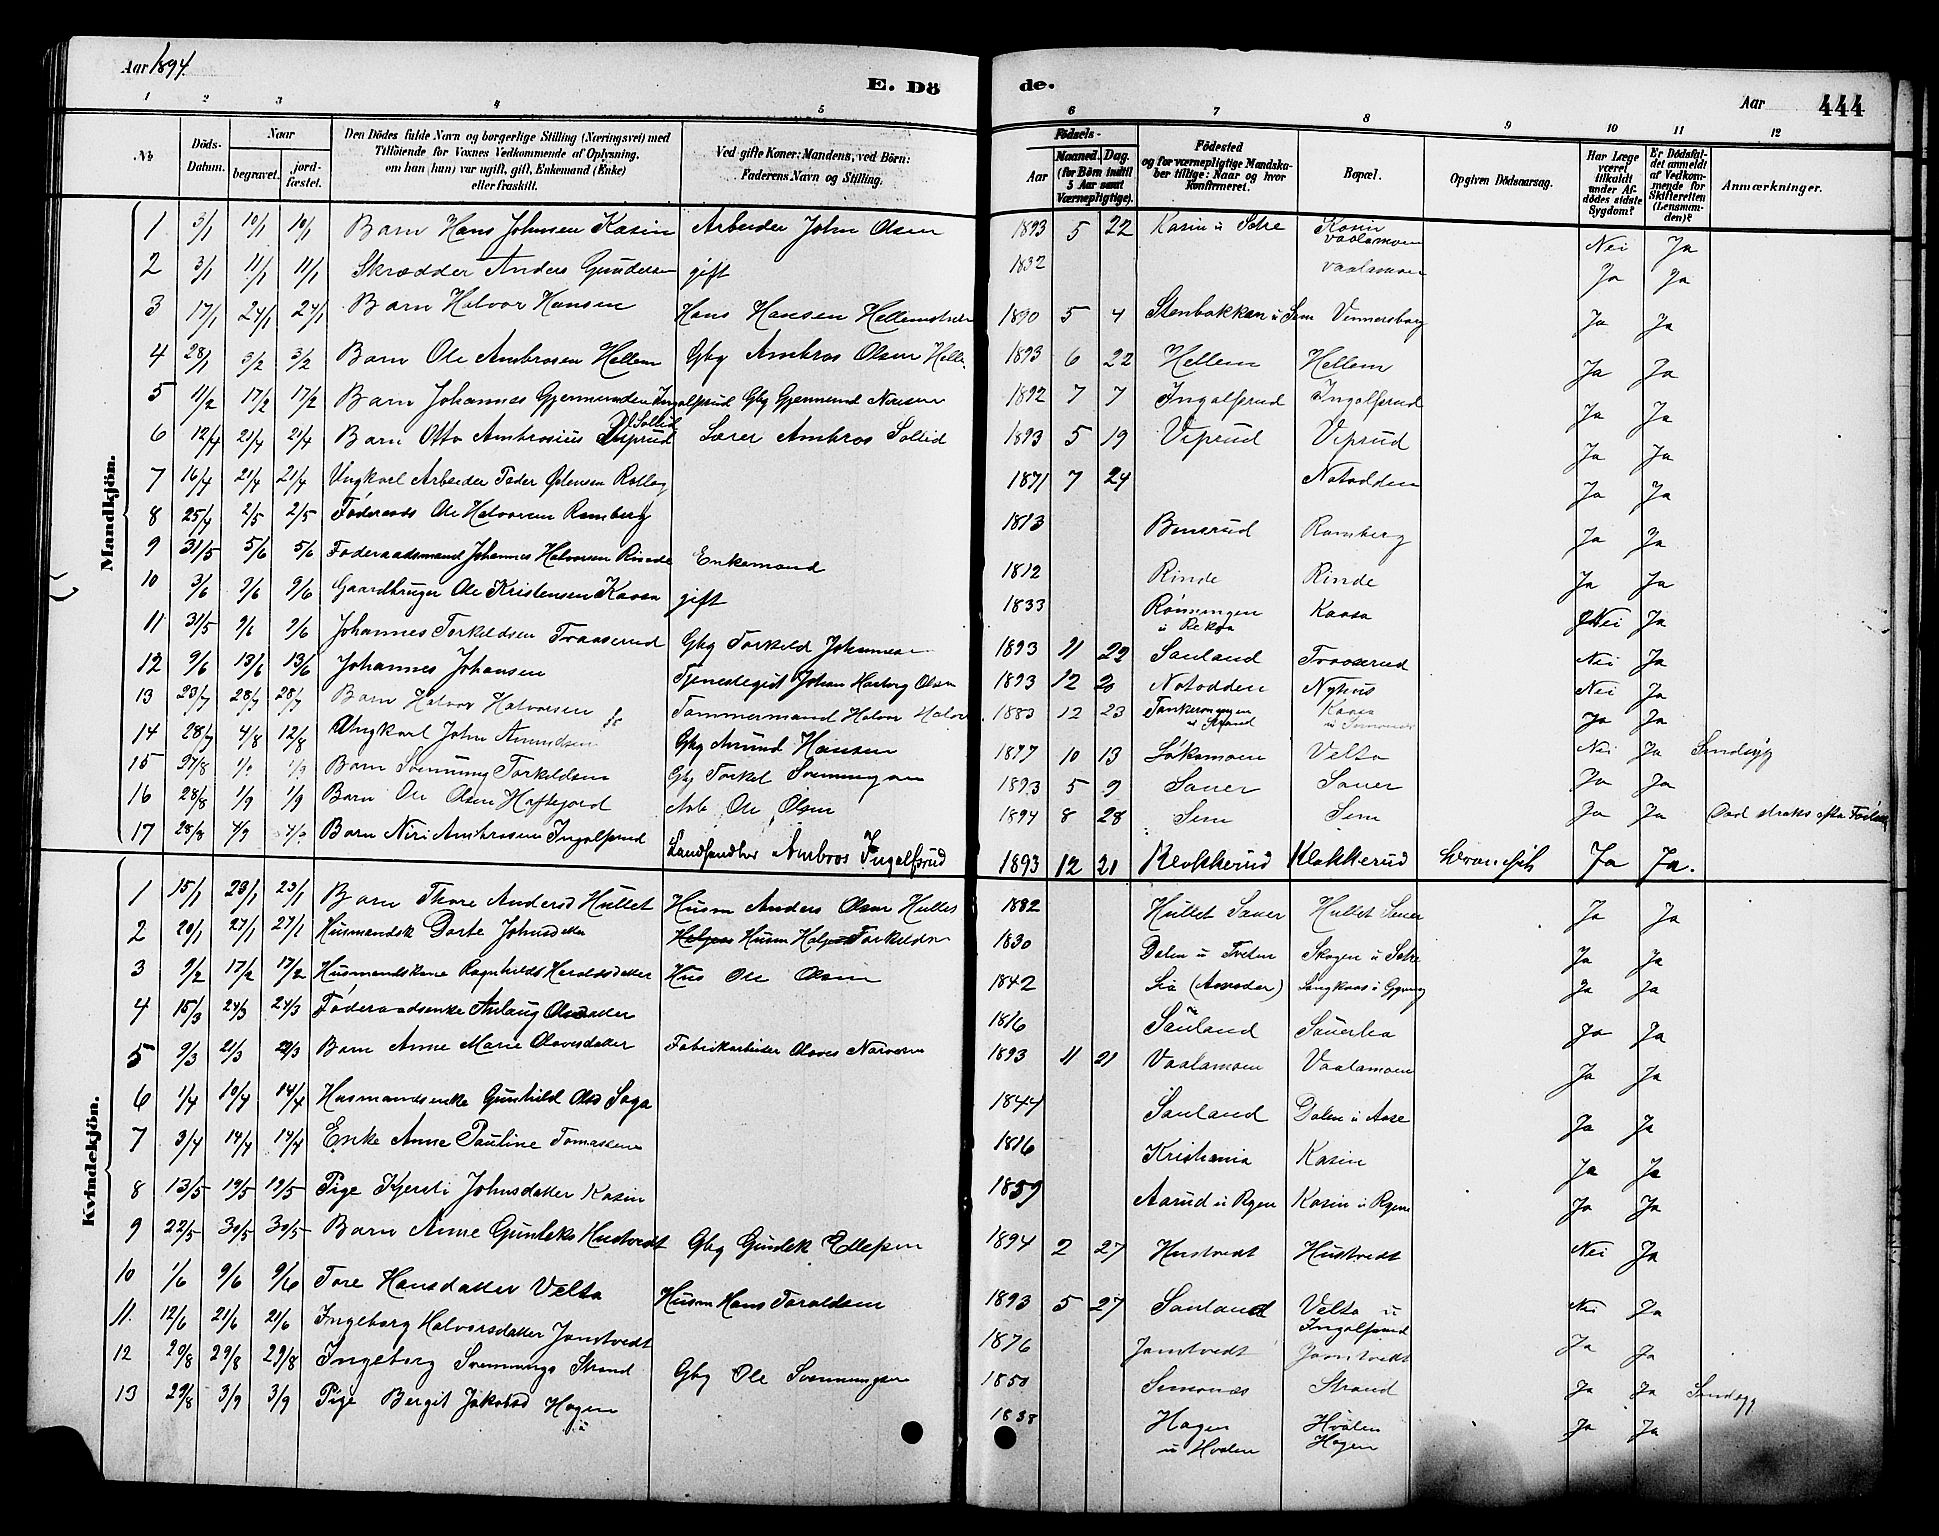 Aar 1894.
E. Dö de.
Aar 444
1 2 3 4 5 6 7 8 9 10 11 12
No
Döds-Datum.
Naar
begravet.
jord-fæstet.
Den Dödes fulde Navn og borgerlige Stilling (Næringsvei) med Tilföiende for Voxnes Vedkommende af Oplysning, om han (hun) var ugift, gift, Enkemand (Enke) eller fraskilt.
Ved gifte Koner: Mandens, ved Börn: Faderens Navn og Stilling.
Födsels-
Aar
Maaned. Dag.
(for Börn indtil 5 Aar samt Værnepligtige).
Födested og for værnepligtige Mandskaber tillige: Naar og hvor Konfirmeret.
Bopæl.
Opgiven Dödsaarsag.
Har Læge været tilkaldt under Afdödes sidste Sygdom?
Er Dödsfaldet anmeldt af Vedkommende for Skifteretten (Lensmanden)?
Anmærkninger.
Mandkjön.
1 3/1 10/1 10/1 Barn Hans Johnsen Kasin Arbeider John Olsen 1893 5 22 Kasin u Sætre Kasin Vaalamoen Nei Ja
2 3/1 11/1 11/1 Skrædder Anders Gundersen gift 1832 Vaalamoen Ja Ja
3 17/1 24/1 24/1 Barn Halvor Hansen Hans Hansen 1890 5 4 Stenbakken u Sem Vinnersborg Ja Ja
4 28/1 3/2 3/2 Barn Ole Ambrosen Hellem Gbg Ambros Olsen Helle 1893 6 22 Hellem Hellem Ja Ja
5 11/2 17/2 17/2 Barn Johannes Gjermunden Ingolfsrud Gbg Gjermund Nirisen 1892 7 7 Ingolfsrud Ingolfsrud Ja Ja
6 12/4 21/4 21/4 Barn Otto Ambrosius Sollid Lærer Ambros Sollid 1893 5 19 Viprud Viprud Ja Ja
7 16/4 21/4 21/4 Ungkarl Arbeider Peder Rollag 1871 7 24 Notodden Ja Ja
8 25/4 2/5 2/5 Föderaads Ole Halvorsen Ramberg 1813 Bensrud Ramberg Ja Ja
9 31/5 5/6 5/6 Föderaadsmand Johannes Halvorsen Rinde Enkemand 1812 Rinde Rinde Ja Ja
10 3/6 9/6 9/6 Gaardbruger Ole Kristensen Kaasa gift 1833 Rönningen u Rekaa Kaasa Nei Ja
11 31/5 9/6 9/6 Johannes Torkildsen Traaserud Gbg Torkild Johannesen 1893 11 22 Sauland Traaserud Nei Ja
12 9/6 13/6 13/6 Johannes Johansen Tjenestegut Johan Olsen 1893 12 20 Notodden Nyhus Nei Ja
13 23/7 28/7 28/7 Barn Halvor Halvorsen Tömmermand Halvor Halvor 1883 12 23 Kaasa Ja Ja
14 28/7 4/8 12/8 Ungkarl John Amundsen Gbg Amund Hansen 1877 10 13 Löksmoen Velta Nei Ja Sindssyg
15 27/8 Barn Svennung Torkildsen Gbg Torkel Svennungsen 1893 5 9 Sauer Sauer Ja Ja
16 28/8 1/9 1/9 Barn Ole Olsen Haftejord Arb Ole Olsen 1894 8 28 Sem Sem Ja Ja Död straks efter Födselen
17 28/8 4/9 Barn Niri Ambrosen Ingolfsrud Landhandler Ambros Ingolfsrud 1893 12 21 Klokkerud Klokkerud Ja Ja.
Kvindekjön.
1 15/1 23/1 23/1 Barn Thore Andersd Hullet Husm Anders Olsen Hullet 1882 Hullet Sauer Hullet Sauer Ja Ja
2 20/1 27/1 27/1 Husmandsk Dorte Johnsdatter Husm Torkildsen 1830 Dalen u Tveten Skogen u Sætre Ja Ja
3 9/2 17/2 17/2 Husmandskone Ragnhild Haroldsdatter Hus Ole Olsen 1842 Lia Langkaas u Ja Ja
4 15/3 24/3 24/3 Föderaadsenke Aslaug 1816 Sauland Sauerlia Ja Ja
5 9/3 21/3 21/3 Barn Anne Marie Olavesdatter Fabrikarbeider Olaves 1893 11 21 Vaalamoen Vaalamoen Ja Ja
6 1/4 10/4 14/4 Husmandsenke Gunhild Olsd Saga 1844 Sauland Dalen u Aase Ja Ja
7 3/4 14/4 14/4 Enke Anne Pauline Tomassen 1816 Kristiania Kasin Ja Ja
8 13/5 19/5 19/5 Pige Kjersti Johnsdatter Kasin 1859 Aarud u Rygen Kasin u Rygen Ja Ja
9 22/5 30/5 30/5 Barn Anne Gunleks Hustvedt Gbg Gunlek Ellefsen 1894 2 27 Hustvedt Hustvedt Nei Ja
10 1/6 9/6 9/6 Tore Hansdatter Velta Husm Hans Taraldsen 1893 5 27 Sauland Velta u Ingolfsrud Nei Ja
11. 12/6 21/6 21/6 Ingeborg Halvorsdatter Jamtvedt 1876 Jamtvedt Jamtvedt Ja Ja
12 20/8 29/8 29/8 Ingeborg Svennungs Strand Gbg Ole Svennungsen 1850 Semonæs Strand Ja Ja Sindssyg
13 29/8 3/9 3/9 Pige Bergit Jakobsd Hagen 1838 Hagen u Hvalen Hvalen Hagen Ja Ja